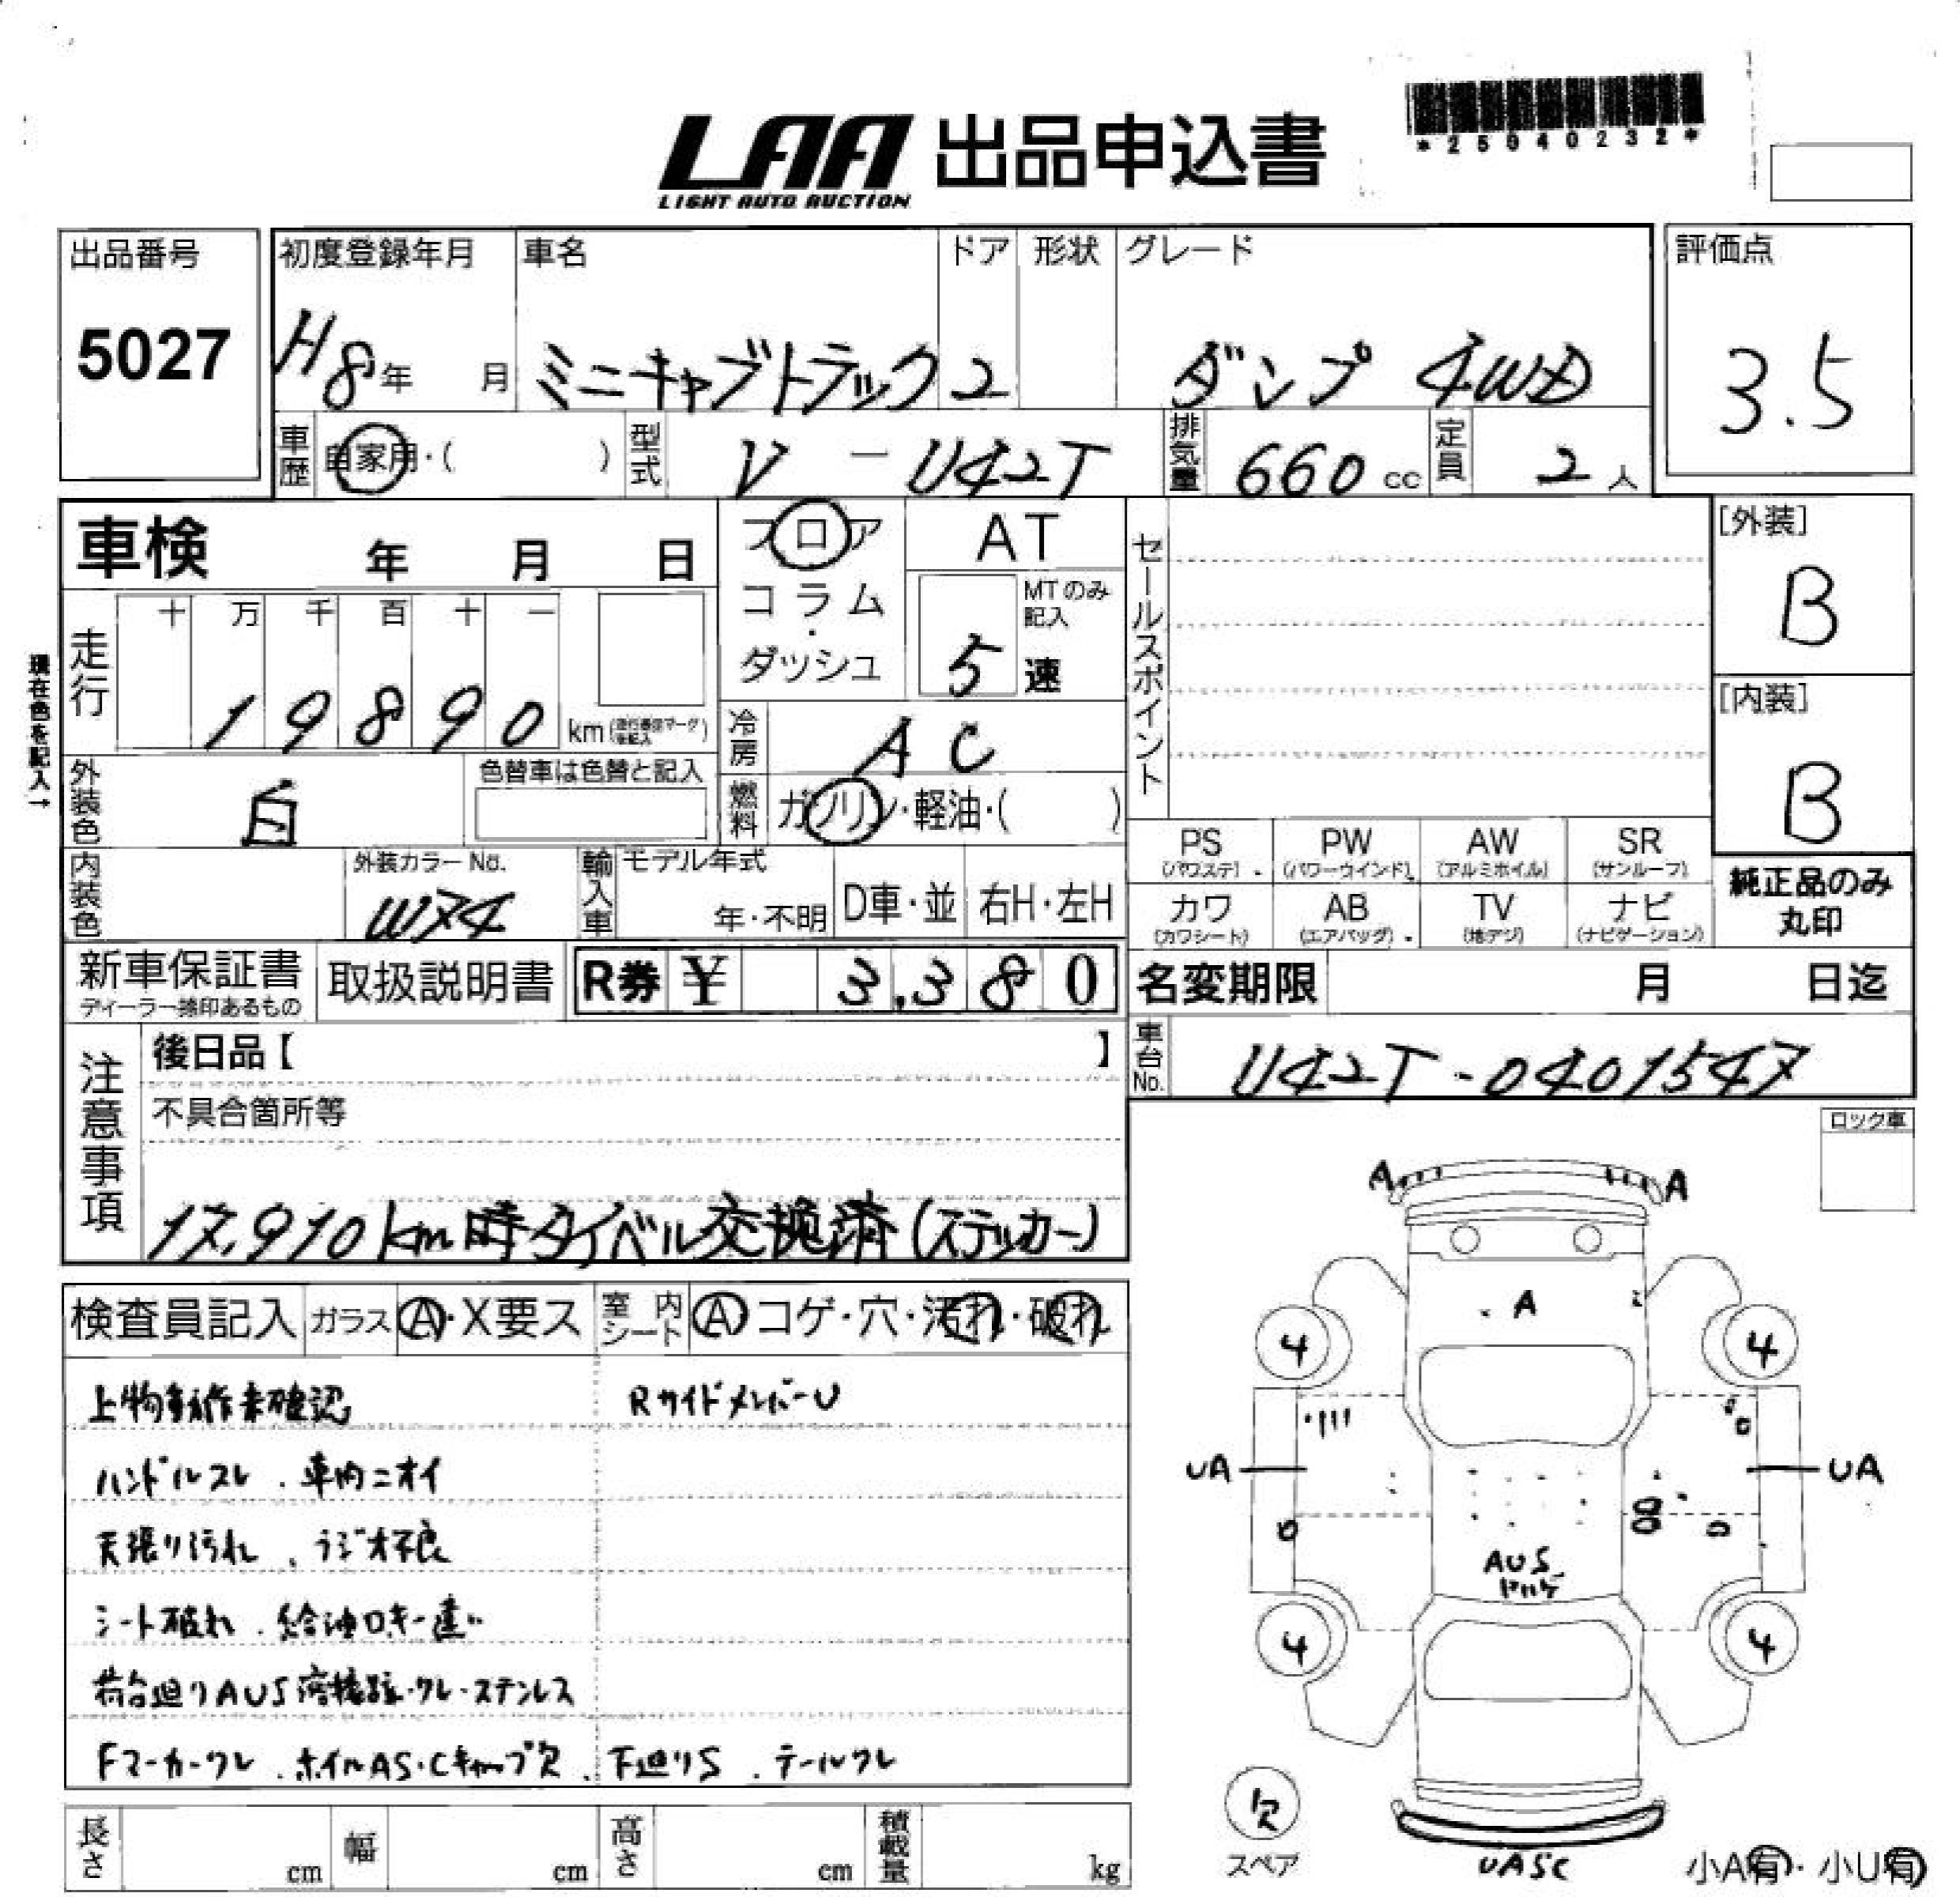 *25940232*
LAA 出品申込書
LIGHT AUTO AUCTION
出品番号
5027
初度登録年月
H8年 月
車名
ミニキャブトラック
ドア
2
形状
グレード
ダンプ 4WD
評価点
3.5
車歴
自家用・( )
型式
V - U42T
排気量
660 cc
定員
2人
車検 年 月 日
フロア
コラム
・
ダッシュ
AT
MTのみ
記入
5速
セールスポイント
[外装]
B
[内装]
B
現在色を記入→
走行
十 万 千 百 十 一
1 9 8 9 0 km
冷房
AC
燃料
ガソリン・軽油・( )
外装色
白
色替車は色替と記入
内装色
外装カラーNo.
W74
輸入車
モデル年式
年・不明
D車・並
右H・左H
PS
(パワステ)
PW
(パワーウインド)
AW
(アルミホイル)
SR
(サンルーフ)
カワ
(カワシート)
AB
(エアバッグ)
TV
(地デジ)
ナビ
(ナビゲーション)
純正品のみ
丸印
新車保証書
ディーラー捺印あるもの
取扱説明書
R券 ¥ 3,380
名変期限 月 日迄
車台No.
U42T-0401547
注意事項
後日品【 】
不具合箇所等
17,910km時タイベル交換済(ステッカー)
ロック車
検査員記入
ガラス
A・X要ス
室内シート
A コゲ・穴・汚れ・破れ
上物動作未確認
RサイドメンバーU
ハンドルスレ . 車内ニオイ
天張り汚れ 、ラジオ不良
シート破れ . 給油口キー違い
荷台廻りAUS溶接跡・ワレ・ステンレス
Fマーカーワレ . ホイルAS・Cキャップ欠 . 下廻りS . テールワレ
A
A
A
4
4
UA
UA
AUS
4
4
欠
スペア
UASC
小A有・小U有
長さ cm
幅 cm
高さ cm
積載量 kg